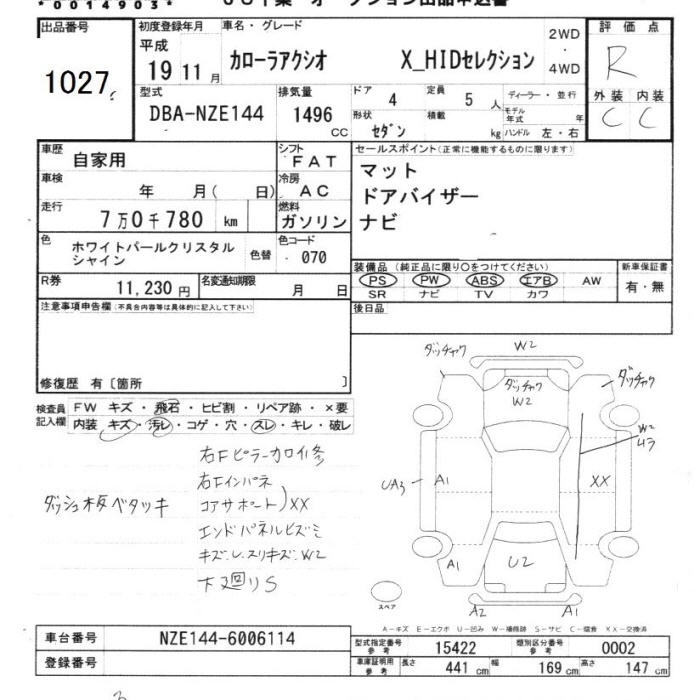 *0014903*
出品番号 1027
初度登録年月 車名・グレード 2WD・4WD 評価点
平成 19 11月 カローラアクシオ X_HIDセレクション R
型式 DBA-NZE144 排気量 1496 CC
ドア 4 定員 5 人 ディーラー・並行
形状 セダン 積載 kg モデル年式 年 ハンドル 左・右
外装 内装
C C
車歴 自家用 シフト FAT
車検 年 月( 日) 冷房 AC
走行 7万0千780 km 燃料 ガソリン
色 ホワイトパールクリスタルシャイン 色替 色コード 070
R券 11,230円 名変通知期限 月 日
セールスポイント(正常に機能するものに限ります)
マット
ドアバイザー
ナビ
装備品(純正品に限り○をつけてください) 新車保証書
PS PW ABS エアB AW 有・無
SR ナビ TV カワ
後日品
注意事項申告欄(不具合内容等は具体的に記入して下さい)
修復歴 有〔箇所 〕
検査員記入欄 FW キズ・飛石・ヒビ割・リペア跡・×要
内装 キズ・汚レ・コゲ・穴・スレ・キレ・破レ
右Fピラーカロイ修
右Fインパネ
コアサポート)XX
エンドパネルヒズミ
キズ.レ.スリキズ.W2
下廻りS
ダッシュ板ベタツキ
ダッチャク W2
ダッチャク
W2
ダッチャク
W2
UA3 A1 XX
A1 U2
A2 A1
スペア
A-キズ E-エクボ U-凹み W-補修跡 S-サビ C-腐食 XX-交換済
車台番号 NZE144-6006114
登録番号
型式指定番号 参考 15422 類別区分番号 参考 0002
車庫証明用 参考 長さ 441 cm 幅 169 cm 高さ 147 cm